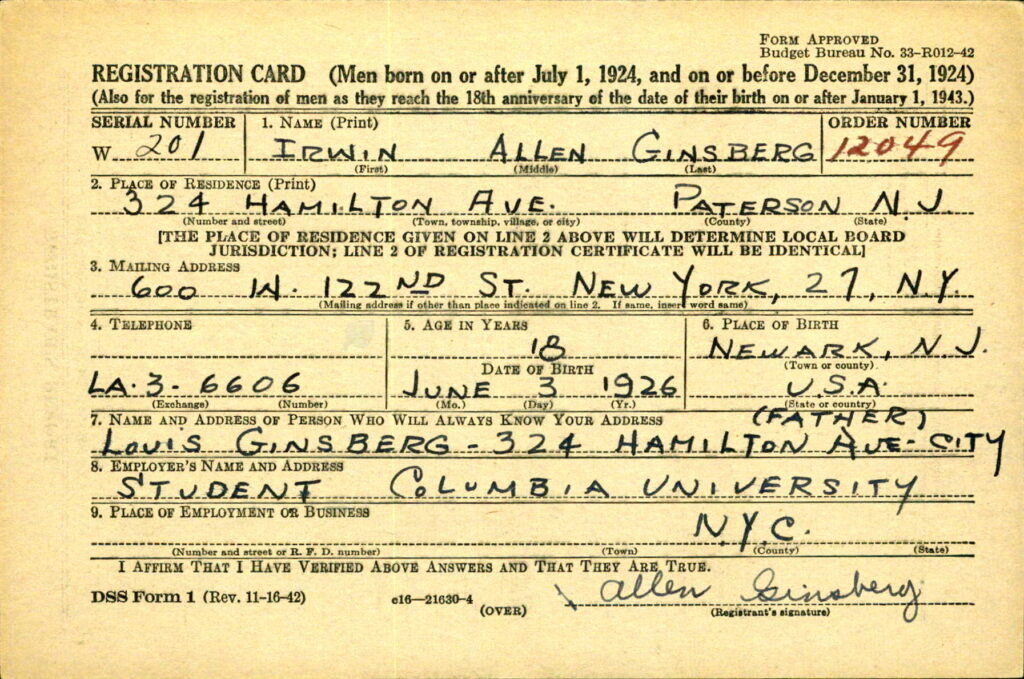 FORM APPROVED
Budget Bureau No. 33–R012–42
REGISTRATION CARD (Men born on or after July 1, 1924, and on or before December 31, 1924)
(Also for the registration of men as they reach the 18th anniversary of the date of their birth on or after January 1, 1943.)
SERIAL NUMBER 1. NAME (Print) ORDER NUMBER
W 201 IRWIN ALLEN GINSBERG 12049
(First) (Middle) (Last)
2. PLACE OF RESIDENCE (Print)
324 HAMILTON AVE. PATERSON N.J.
(Number and street) (Town, township, village, or city) (County) (State)
[THE PLACE OF RESIDENCE GIVEN ON LINE 2 ABOVE WILL DETERMINE LOCAL BOARD
JURISDICTION; LINE 2 OF REGISTRATION CERTIFICATE WILL BE IDENTICAL]
3. MAILING ADDRESS
600 W. 122ND ST. NEW YORK, 27, N.Y.
(Mailing address if other than place indicated on line 2. If same, insert word same)
4. TELEPHONE 5. AGE IN YEARS 6. PLACE OF BIRTH
18 NEWARK, N.J.
DATE OF BIRTH (Town or county)
LA-3-6606 JUNE 3 1926 U.S.A.
(Exchange) (Number) (Mo.) (Day) (Yr.) (State or country)
7. NAME AND ADDRESS OF PERSON WHO WILL ALWAYS KNOW YOUR ADDRESS (FATHER)
LOUIS GINSBERG - 324 HAMILTON AVE - CITY
8. EMPLOYER'S NAME AND ADDRESS
STUDENT COLUMBIA UNIVERSITY
9. PLACE OF EMPLOYMENT OR BUSINESS
N.Y.C.
(Number and street or R. F. D. number) (Town) (County) (State)
I AFFIRM THAT I HAVE VERIFIED ABOVE ANSWERS AND THAT THEY ARE TRUE.
DSS Form 1 (Rev. 11-16-42) c16—21630-4 Allen Ginsberg
(OVER) (Registrant's signature)